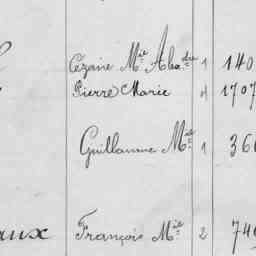 Cézaire Mie Aladre 1 140
Pierre Marie 4 1707
Guillaume Mie 1 366
aux François Mie 2 746